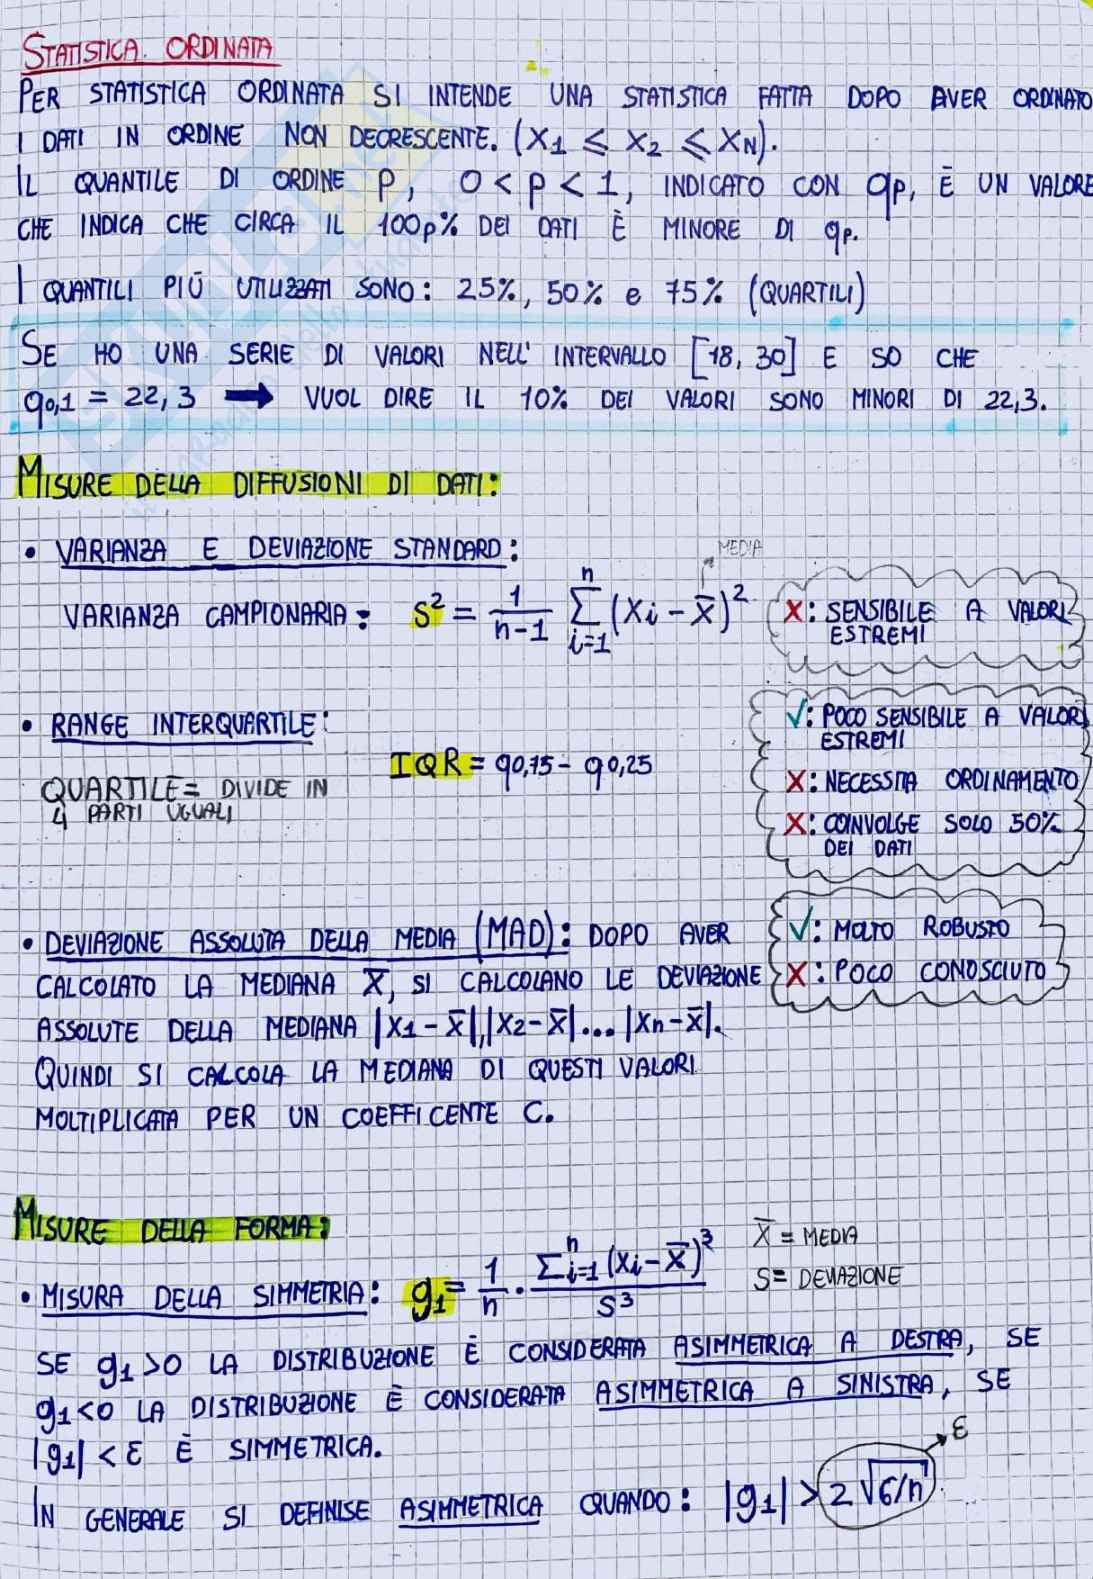 STATISTICA ORDINATA
PER STATISTICA ORDINATA SI INTENDE UNA STATISTICA FATTA DOPO AVER ORDINATO
I DATI IN ORDINE NON DECRESCENTE. (X1 ⩽ X2 ⩽ XN).
IL QUANTILE DI ORDINE P, 0 < P < 1, INDICATO CON qp, È UN VALORE
CHE INDICA CHE CIRCA IL 100p% DEI DATI È MINORE DI qp.
I QUANTILI PIÙ UTILIZZATI SONO: 25%, 50% e 75% (QUARTILI)
SE HO UNA SERIE DI VALORI NELL' INTERVALLO [18, 30] E SO CHE
q0,1 = 22,3 → VUOL DIRE IL 10% DEI VALORI SONO MINORI DI 22,3.
MISURE DELLA DIFFUSIONI DI DATI:
• VARIANZA E DEVIAZIONE STANDARD:
MEDIA
VARIANZA CAMPIONARIA: S² = 1/(n-1) Σ_{i=1}^{n} (Xi - X̄)²
X: SENSIBILE A VALORI
ESTREMI
• RANGE INTERQUARTILE:
IQR = q0,75 - q0,25
QUARTILE = DIVIDE IN
4 PARTI UGUALI
√: POCO SENSIBILE A VALORI
ESTREMI
X: NECESSITA ORDINAMENTO
X: COINVOLGE SOLO 50%
DEI DATI
• DEVIAZIONE ASSOLUTA DELLA MEDIA (MAD): DOPO AVER
CALCOLATO LA MEDIANA X̄, SI CALCOLANO LE DEVIAZIONE
ASSOLUTE DELLA MEDIANA |X1 - X̄|,|X2 - X̄|... |Xn - X̄|.
QUINDI SI CALCOLA LA MEDIANA DI QUESTI VALORI
MOLTIPLICATA PER UN COEFFICENTE C.
√: MOLTO ROBUSTO
X: POCO CONOSCIUTO
MISURE DELLA FORMA:
• MISURA DELLA SIMMETRIA: g1 = 1/n · Σ_{i=1}^{n} (Xi - X̄)³ / S³
X̄ = MEDIA
S = DEVIAZIONE
SE g1 > 0 LA DISTRIBUZIONE È CONSIDERATA ASIMMETRICA A DESTRA, SE
g1 < 0 LA DISTRIBUZIONE È CONSIDERATA ASIMMETRICA A SINISTRA, SE
|g1| < ε È SIMMETRICA.
ε
IN GENERALE SI DEFINISE ASIMMETRICA QUANDO: |g1| > 2√6/n